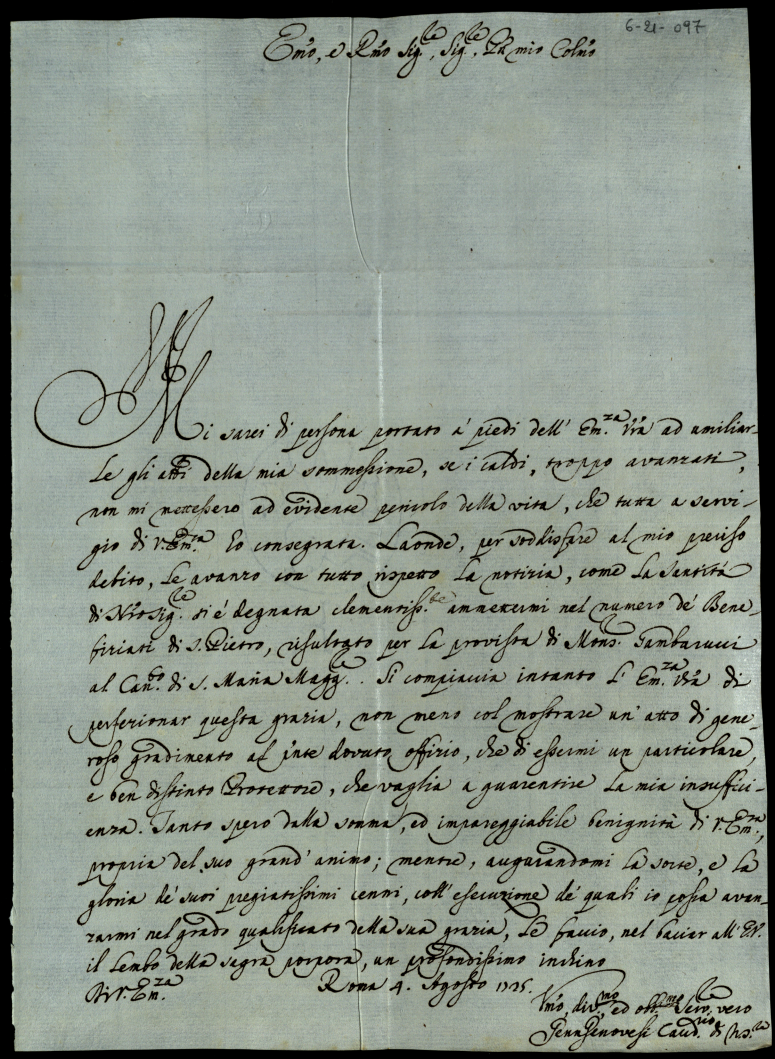 6-21-097
Em̃o, e Rm̃o Sig.re, Sig.re, Pñ mio Colm̃o
Mi sarei di persona portato a' piedi dell' Em.za Vrã ad umiliar-
Le gli atti della mia sommessione, se i caldi, troppo avanzati,
non mi mettessero ad evidente pericolo della vita, che tutta a servi-
gio di V. Em.za Ho consegrata. Laonde, per soddisfare al mio preciso
debito, Le avanzo con tutto rispetto la notizia, come la Santità
di Nrõ Sig.re si è degnata clementiss.te ammettermi nel numero de' Bene-
fiziati di S. Pietro, risultato per la provista di Mons.re Gambarucci
al Can.to di S. Maria Magg.re. Si compiaccia intanto l' Em.za Vrã di
perfezionar questa grazia, non meno col mostrare un' atto di gene-
roso gradimento al p̃nte dovuto offizio, che di essermi un particolare,
e ben distinto Protettore, che vaglia a guarentire la mia insuffici-
enza. Tanto spero dalla somma, ed impareggiabile benignità di V. Em.za,
propria del suo grand' animo; mentre, augurandomi la sorte, e la
gloria de' suoi pregiatissimi cenni, coll' esecuzione de' quali io possa avan-
zarmi nel grado qualificato della sua grazia, Le faccio, nel baciar all' E.V.
il Lembo della sagra porpora, un profondissimo inchino
Di V. Em.za Roma 4. Agosto
Vm̃o, div.mo, ed obb.mo Serv.re vero
Genovesi Caud.rio di